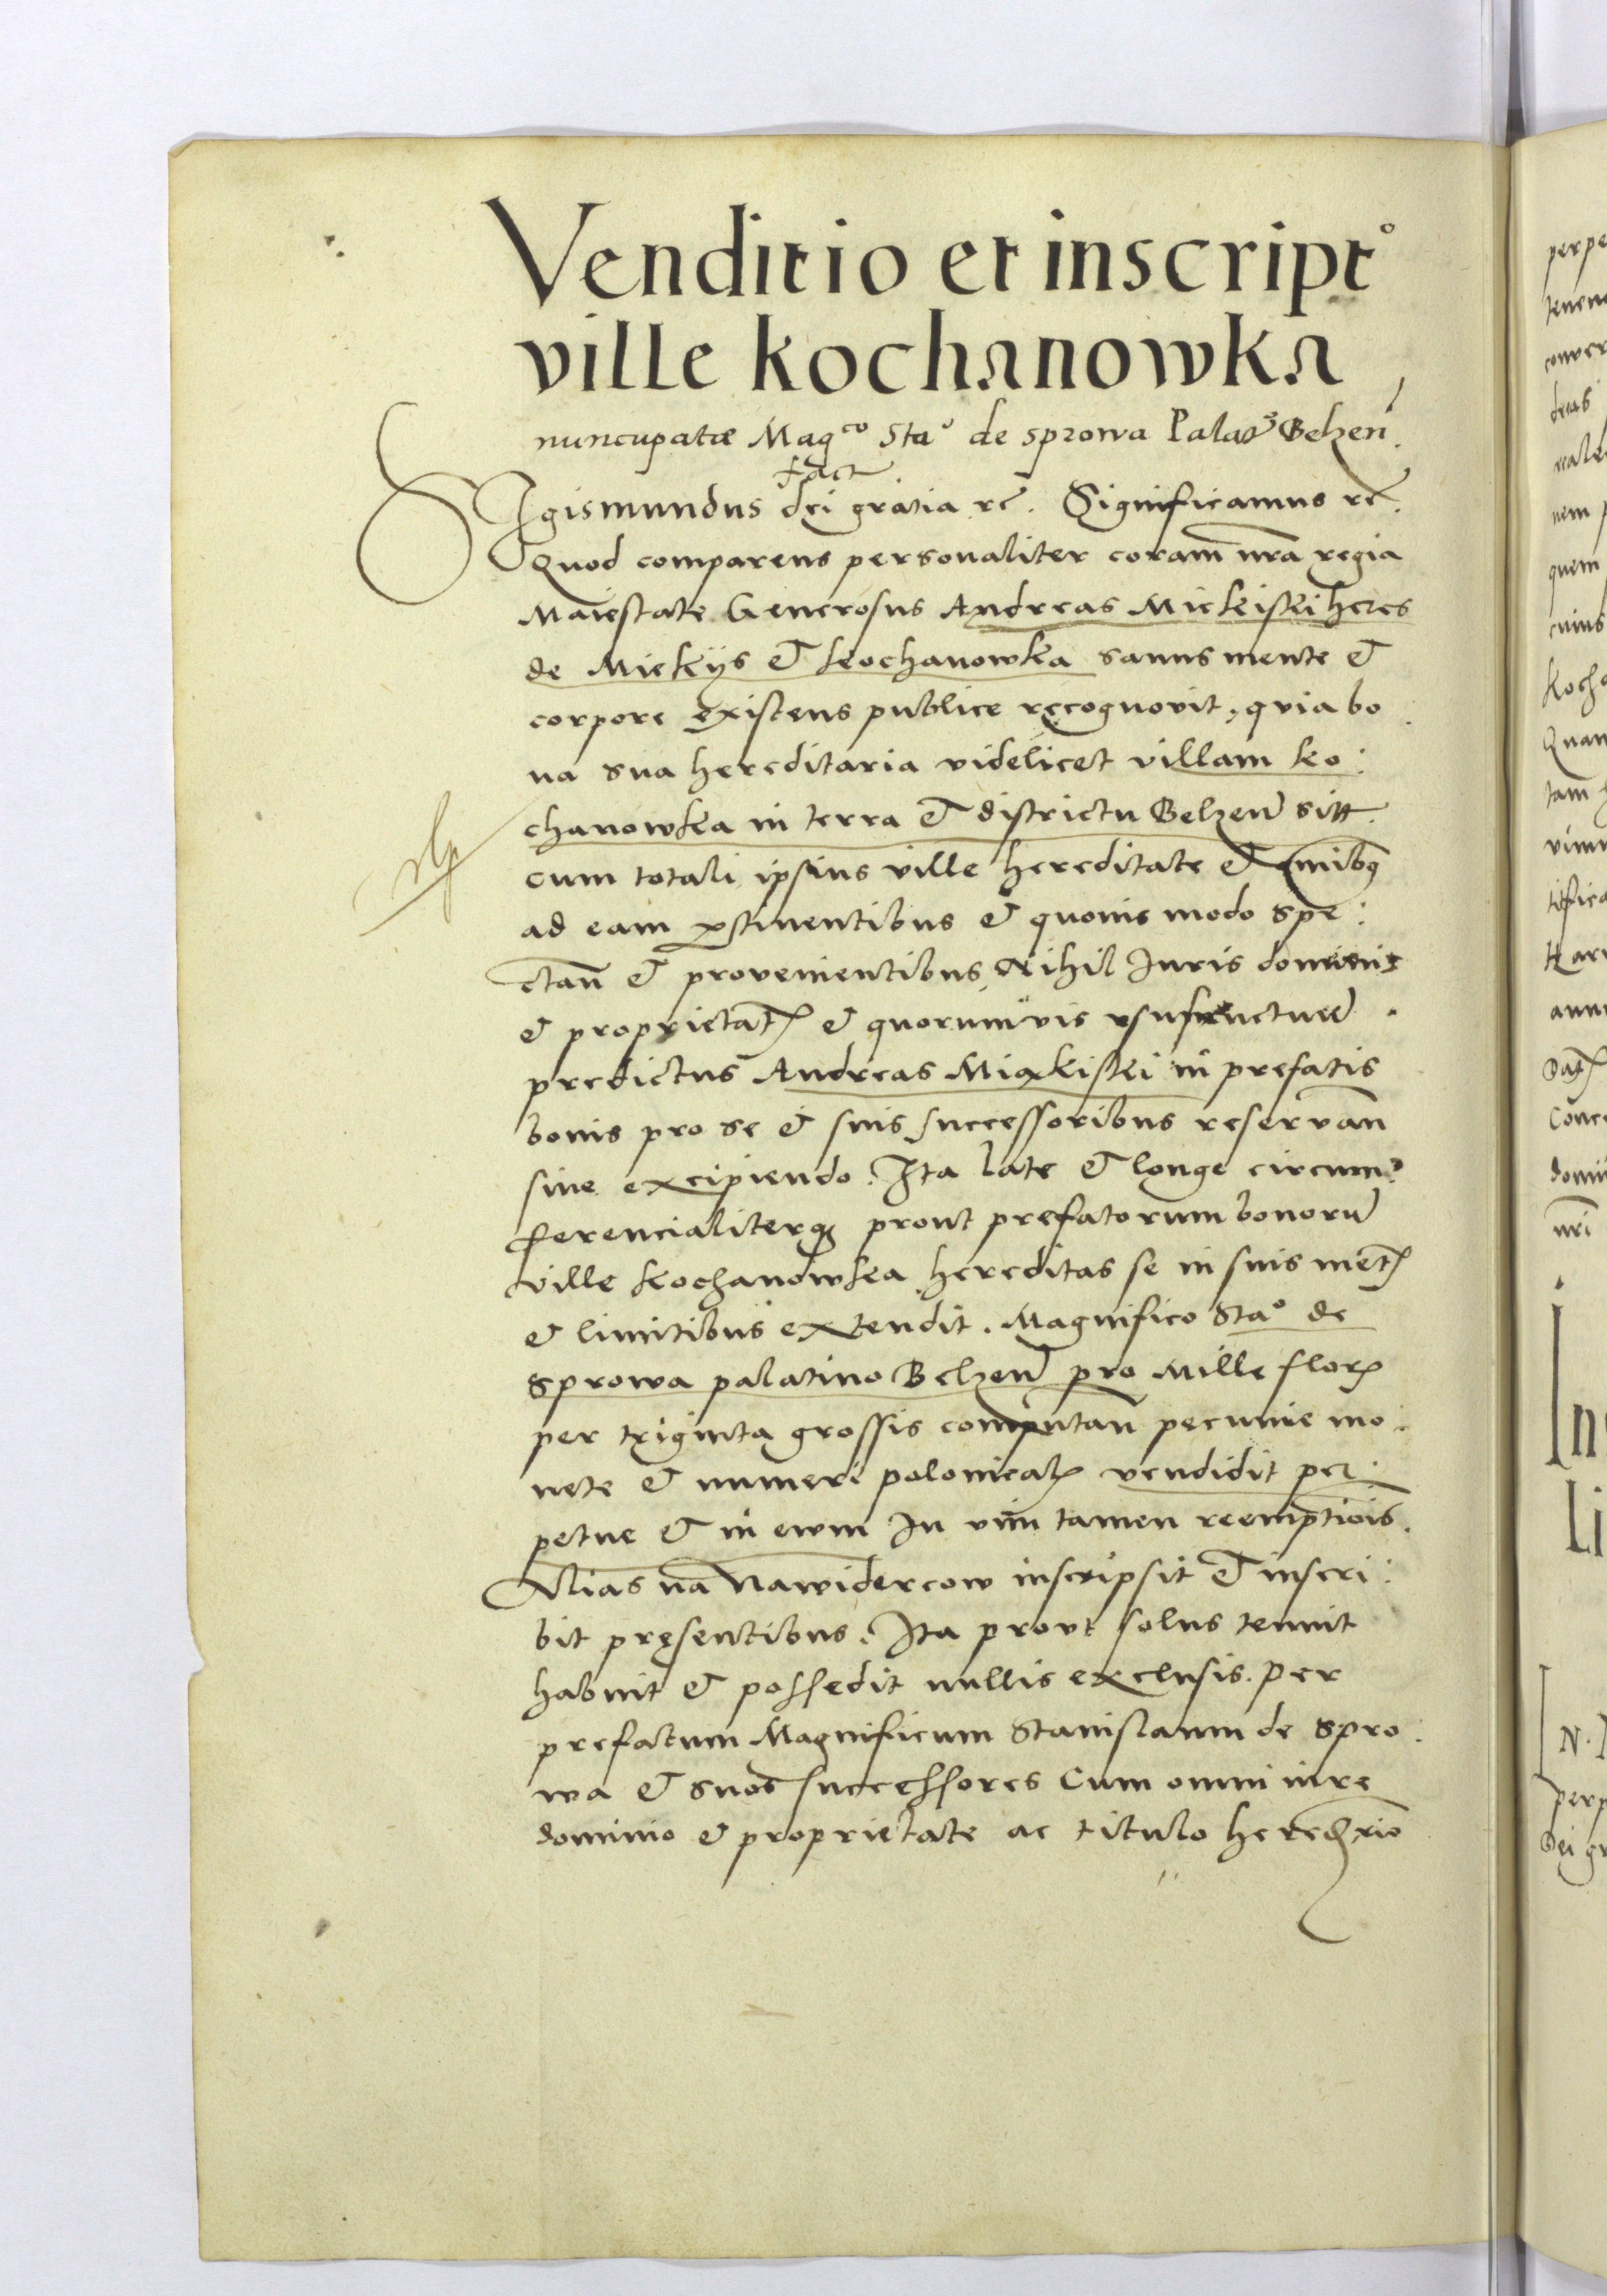 Venditio et inscript°
ville kochanowka
nuncupatæ Mag^co Sta° de sprowa Palat° Belzen̄.
fact
SIgismundus dei gratia rē. Significamus rē.
Quod comparens personaliter coram nrā regia
Maiestate Generosus Andreas Miekiski heres
de Miekijs & kochanowka sanus mente &
corpore existens publice recognovit, quia bo
na sua hereditaria videlicet villam ko:
chanowka in terra & districtu Belzen̄ sitt.
cum totali ipsius ville hereditate & om̄ibq
ad eam pertinentibus & quouis modo spe:
ctan̄ & provenientibus, Nihil Juris dominij
& proprietat) & quorumuis vsufructuū.
predictus Andreas Miekiski in prefatis
bonis pro se & suis successoribus reservan̄
sine excipiendo. Ita late & longe circum:
ferencialiterq) prout prefatorum bonorū
ville kochanowka hereditas se in suis met)
& limitibus extendit. Magnifico Sta° de
Sprowa palatino Belzen̄ pro Mille flor)
per triginta grossis computan̄ pecunie mo:
nete & numeri polonical) vendidit per:
petue & in ewm In vim tamen reemptiōis.
Alias na Nawidercow inscripsit & inscri:
bit pręsentibus. Ita provt solus tenuit
habuit & possedit nullis exclusis. Per
prefatum Magnificum Stanislaum de Spro:
wa & suos successores Cum omni iure
dominio & proprietate ac titulo hereditrio